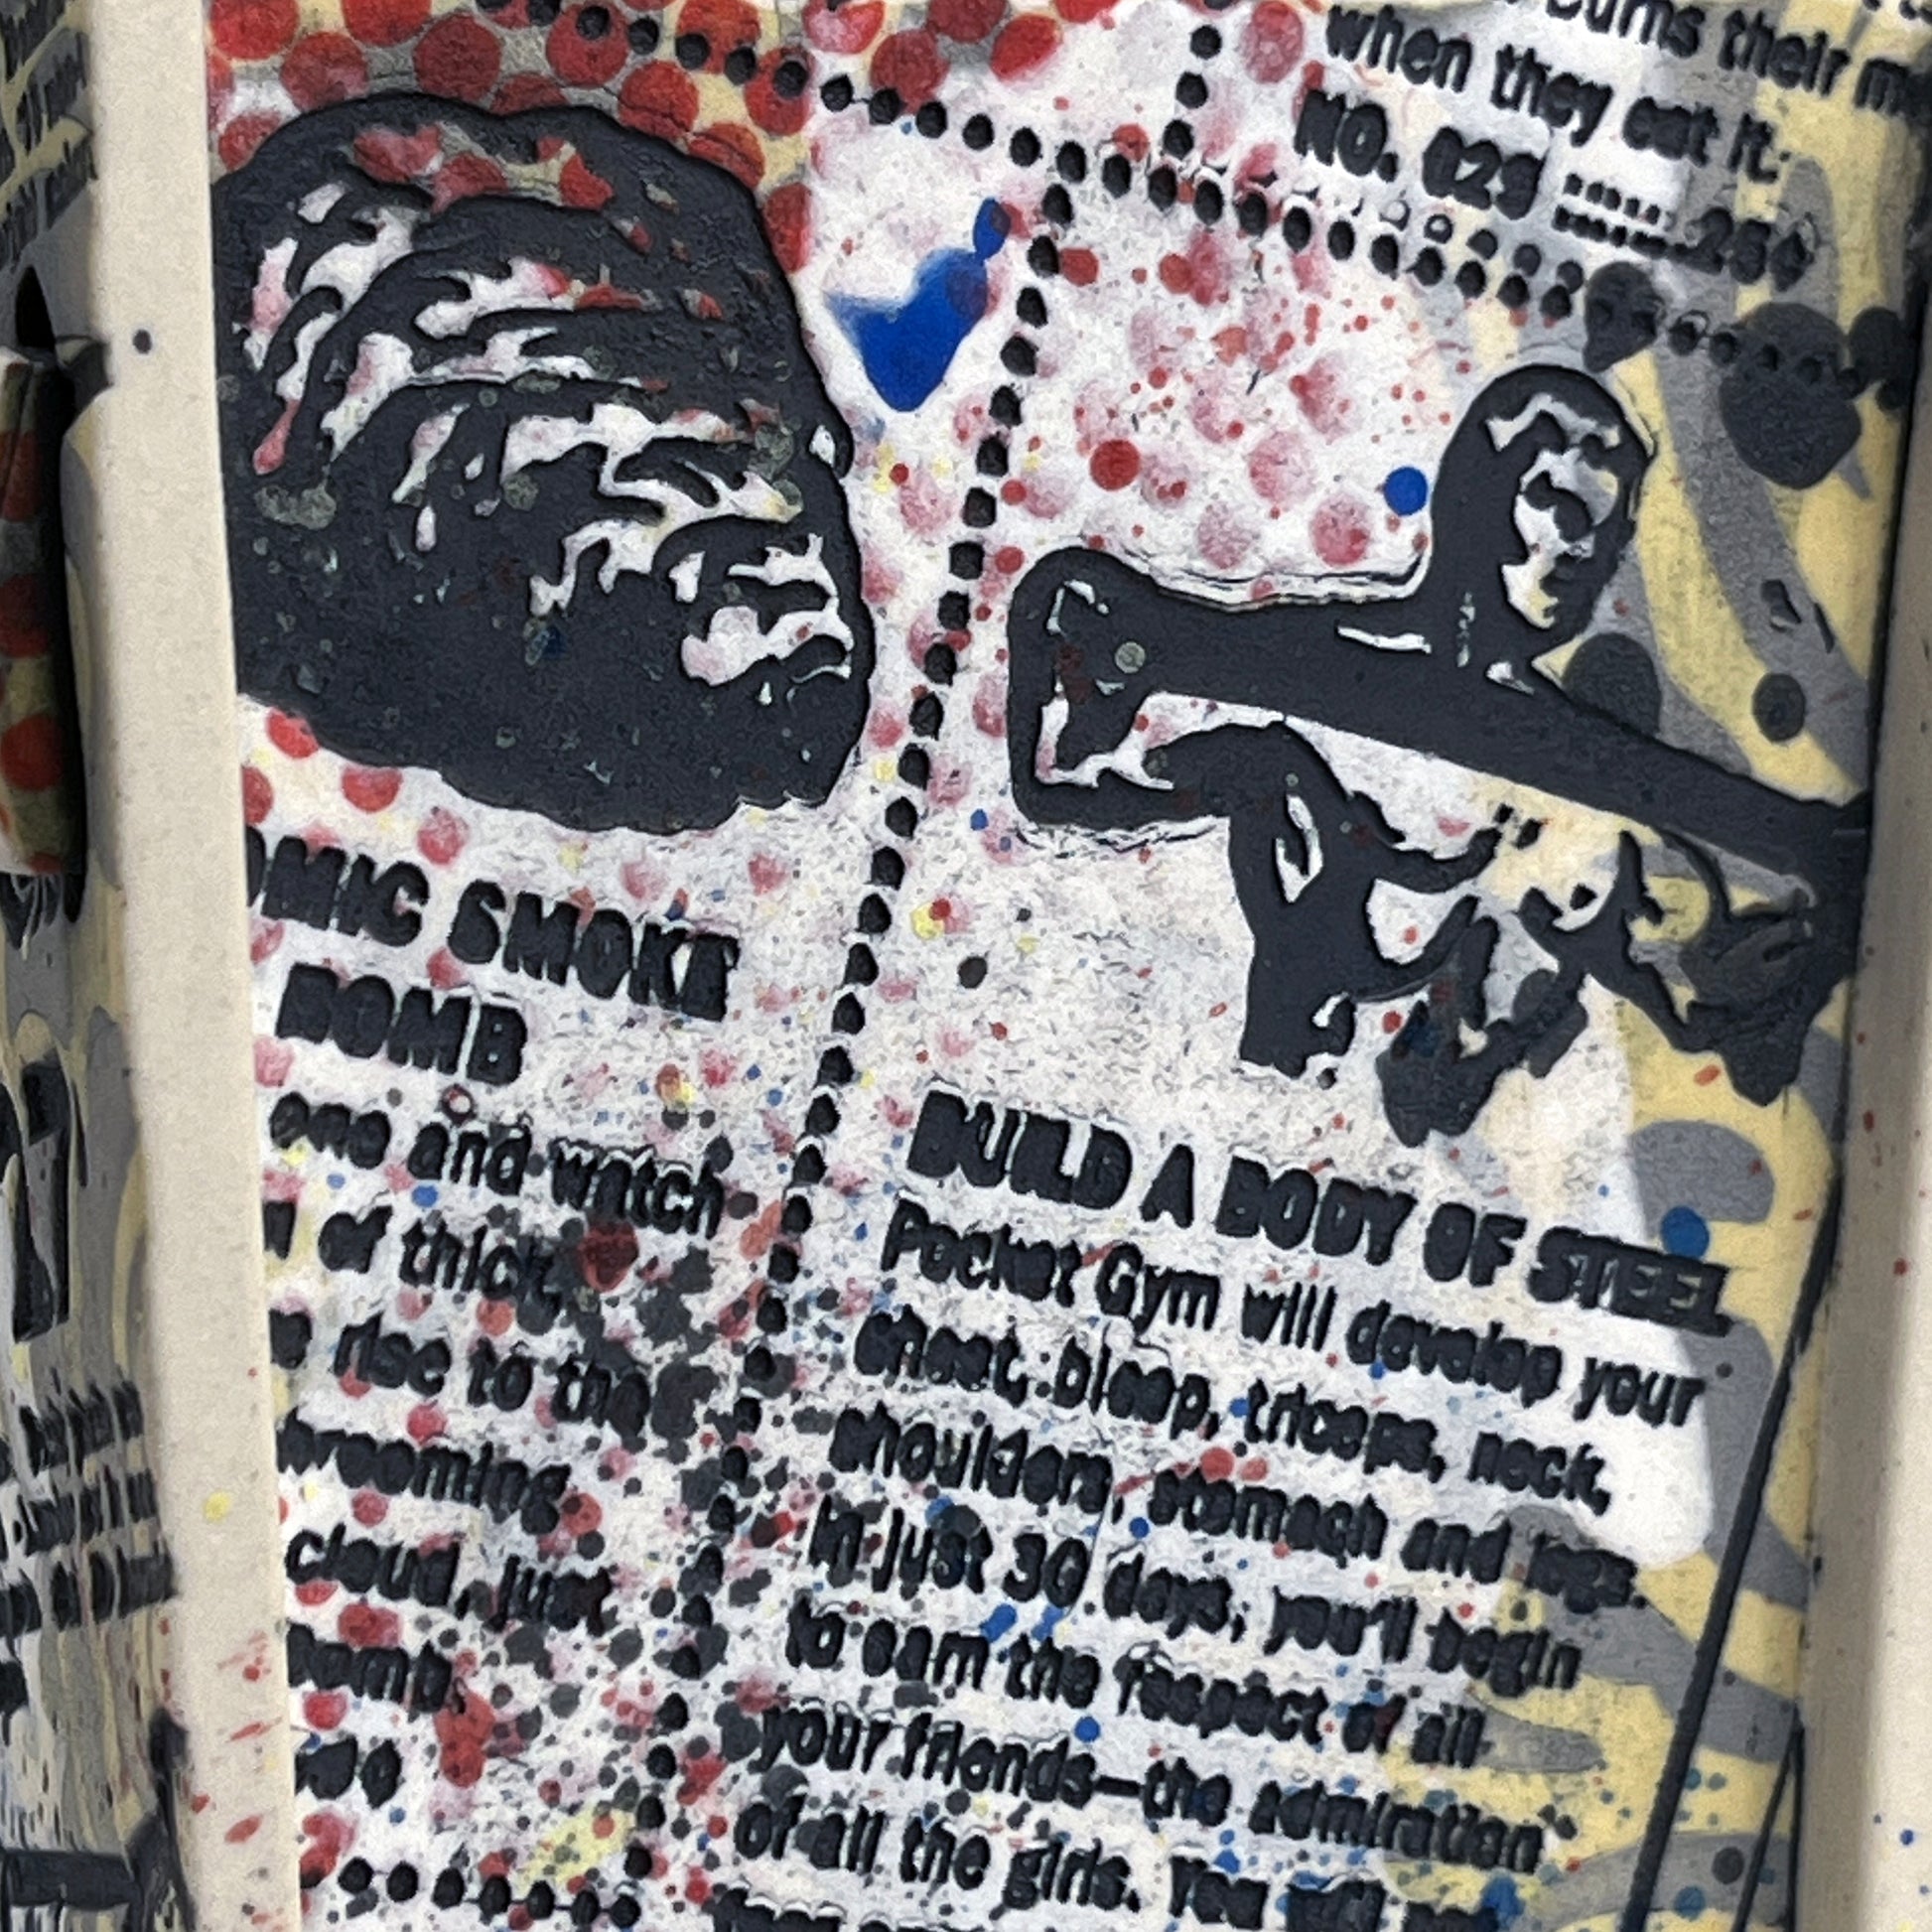 burns their
when they eat it.
NO. 029 ........ 25¢
OMIC SMOKE
BOMB
one and watch
of thick,
rise to the
rooming
cloud, just
bomb.
BUILD A BODY OF STEEL
Pocket Gym will develop your
chest, bicep, triceps, neck,
shoulders, stomach and legs.
In just 30 days, you'll begin
to earn the respect of all
your friends—the admiration
of all the girls. You will